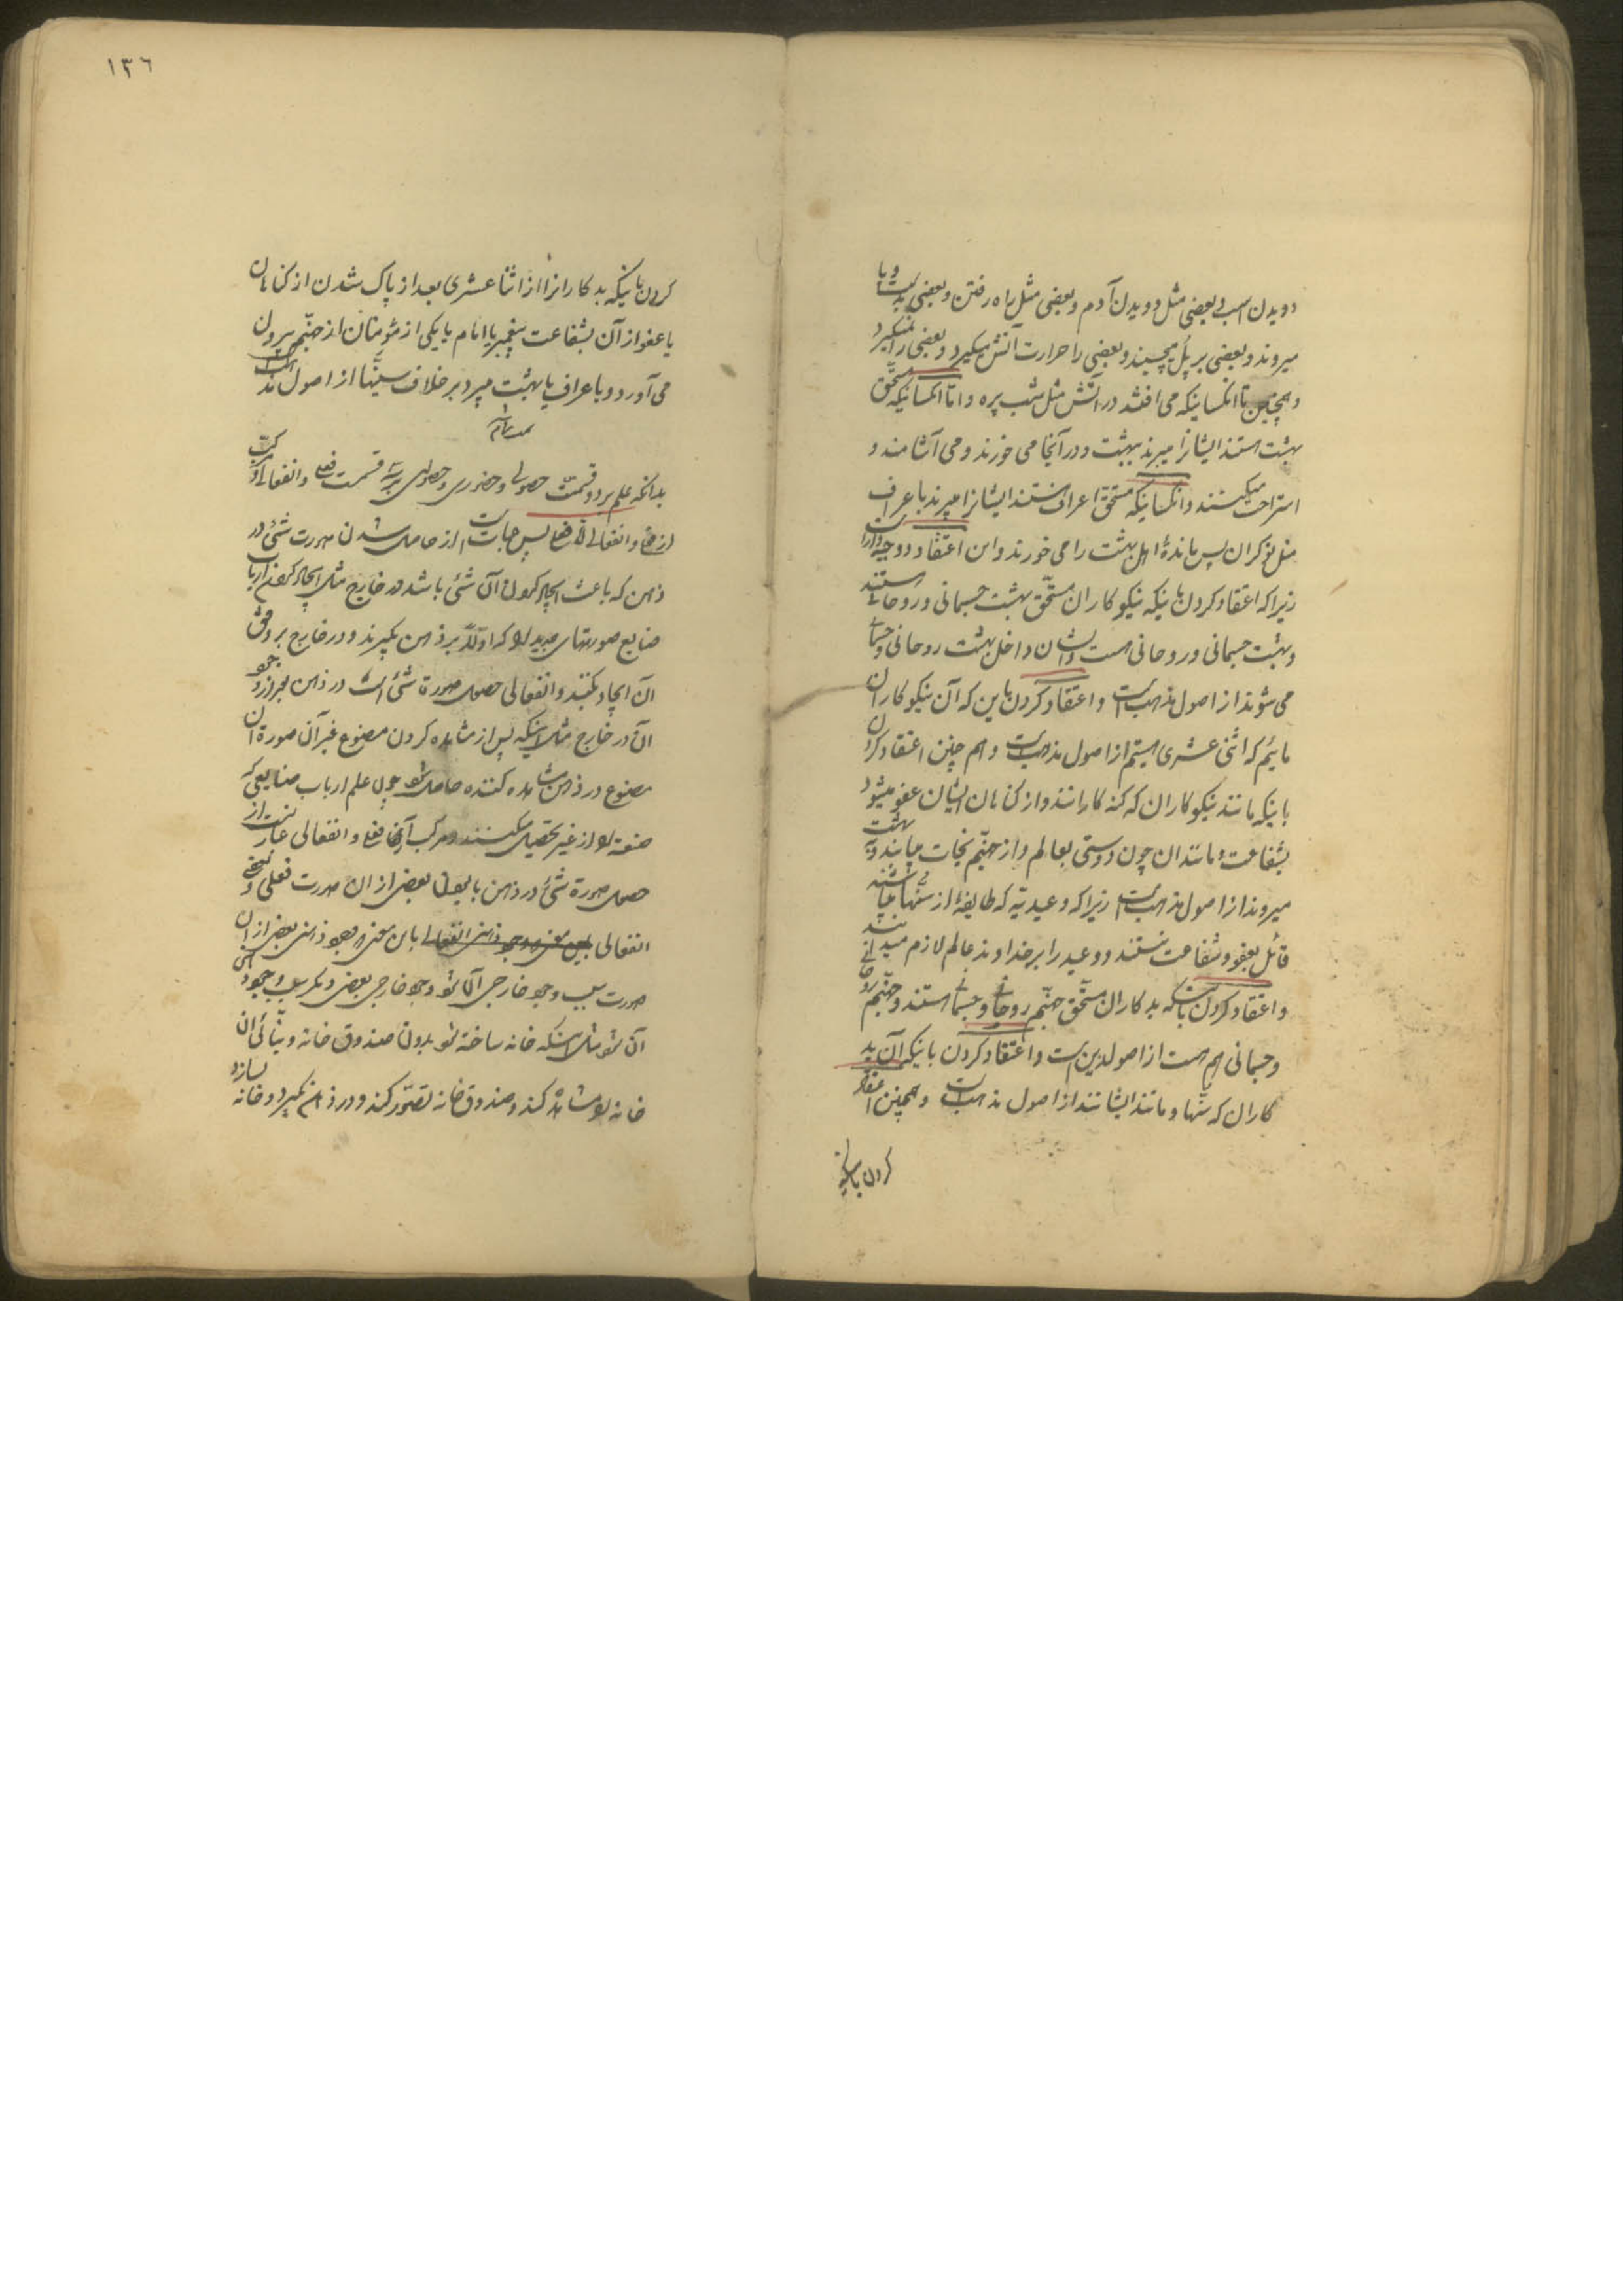 دویدن اسب و بعضی مثل دویدن آدم و بعضی مثل راه رفتن و بعضی بدست و پا
میروند و بعضی بر پل میچسبند و بعضی را حرارت آتش میگیرد و بعضی را نمیگیرد
و همچنین تا آنکسانیکه می افتند در آتش مثل شب پره و اما آنکسانیکه مستحق
بهشت هستند ایشانرا میبرند ببهشت و در آنجا می خورند و می آشامند و
استراحت میکنند و آنکسانیکه مستحق اعراف هستند ایشانرا میبرند باعراف
مثل نوکران پس ماندهٔ اهل بهشت را می خورند و این اعتقاد دو وجه دارد
زیرا که اعتقاد کردن باینکه نیکوکاران مستحق بهشت جسمانی و روحانی هستند
و بهشت جسمانی و روحانی هست و ایشان داخل بهشت روحانی و جسمانی
می شوند از اصول مذهب است و اعتقاد کردن باین که آن نیکوکاران
مائیم که اثنی عشری هستیم از اصول مذهب است و هم چنین اعتقاد کردن
باینکه مانند نیکوکاران که گنه کارانند و از گناهان ایشان عفو میشود
بشفاعت و مانند آن چون دوستی بعالم و از جهنم نجات مییابند و به بهشت
میروند از اصول مذهب است زیرا که وعیدیه که طایفهٔ از سنیها میباشند
قائل بعفو و شفاعت نیستند و وعید را بر خداوند عالم لازم میدانند
و اعتقاد کردن باینکه بدکاران مستحق جهنم روحانی و جسمانی هستند و جهنم روحانی
و جسمانی هم هست از اصول دین است و اعتقاد کردن باینکه آن بد
کاران که سنیها و مانند ایشانند از اصول مذهب است و همچنین اعتقاد
کردن باینکه
١٣٦
کردن باینکه بدکارانرا از اثنا عشری بعد از پاک شدن از گناهان
یا عفو از آن بشفاعت پیغمبر یا امام یا یکی از مؤمنان از جهنم بیرون
می آورد و باعراف یا بهشت میبرد بر خلاف سنیها از اصول مذهب است
بدانکه علم بر دو قسمت حصولی و حضوری و حصولی بر سه قسمت فعلی و انفعالی و مرکب
از فعلی و انفعالی پس عبارت است از حاصل شدن صورت شئ در
ذهن که باعث ایجاد کردن آن شئ باشد در خارج مثل ایجاد کردن ارباب
صنایع صورتهای جدید را که اولا در ذهن بگیرند و در خارج بر وفق
آن ایجاد بکنند و انفعالی حصول صورة شئ است در ذهن بعد از وجود
آن در خارج مثل اینکه پس از مشاهده کردن مصنوع غیر آن صورة آن
مصنوع در ذهن مشاهده کننده حاصل شود چون علم ارباب صنایعی که
صنعة را از غیر تحصیل میکنند و مرکب از فعلی و انفعالی عبارتست از
حصول صورة شئ در ذهن بعضی از آن صورت فعلی و بعضی
انفعالی باین معنی وجود ذهنی بعضی از آن
صورت سبب وجود خارجی آن شود و وجود خارجی بعضی دیگر سبب وجود ذهنی
آن شود مثل اینکه خانه ساخته شود بدون صندوق خانه و بنائی آن
خانه را مشاهده کند و صندوق خانه تصور کند و در ذهن بگیرد و خانه بسازد